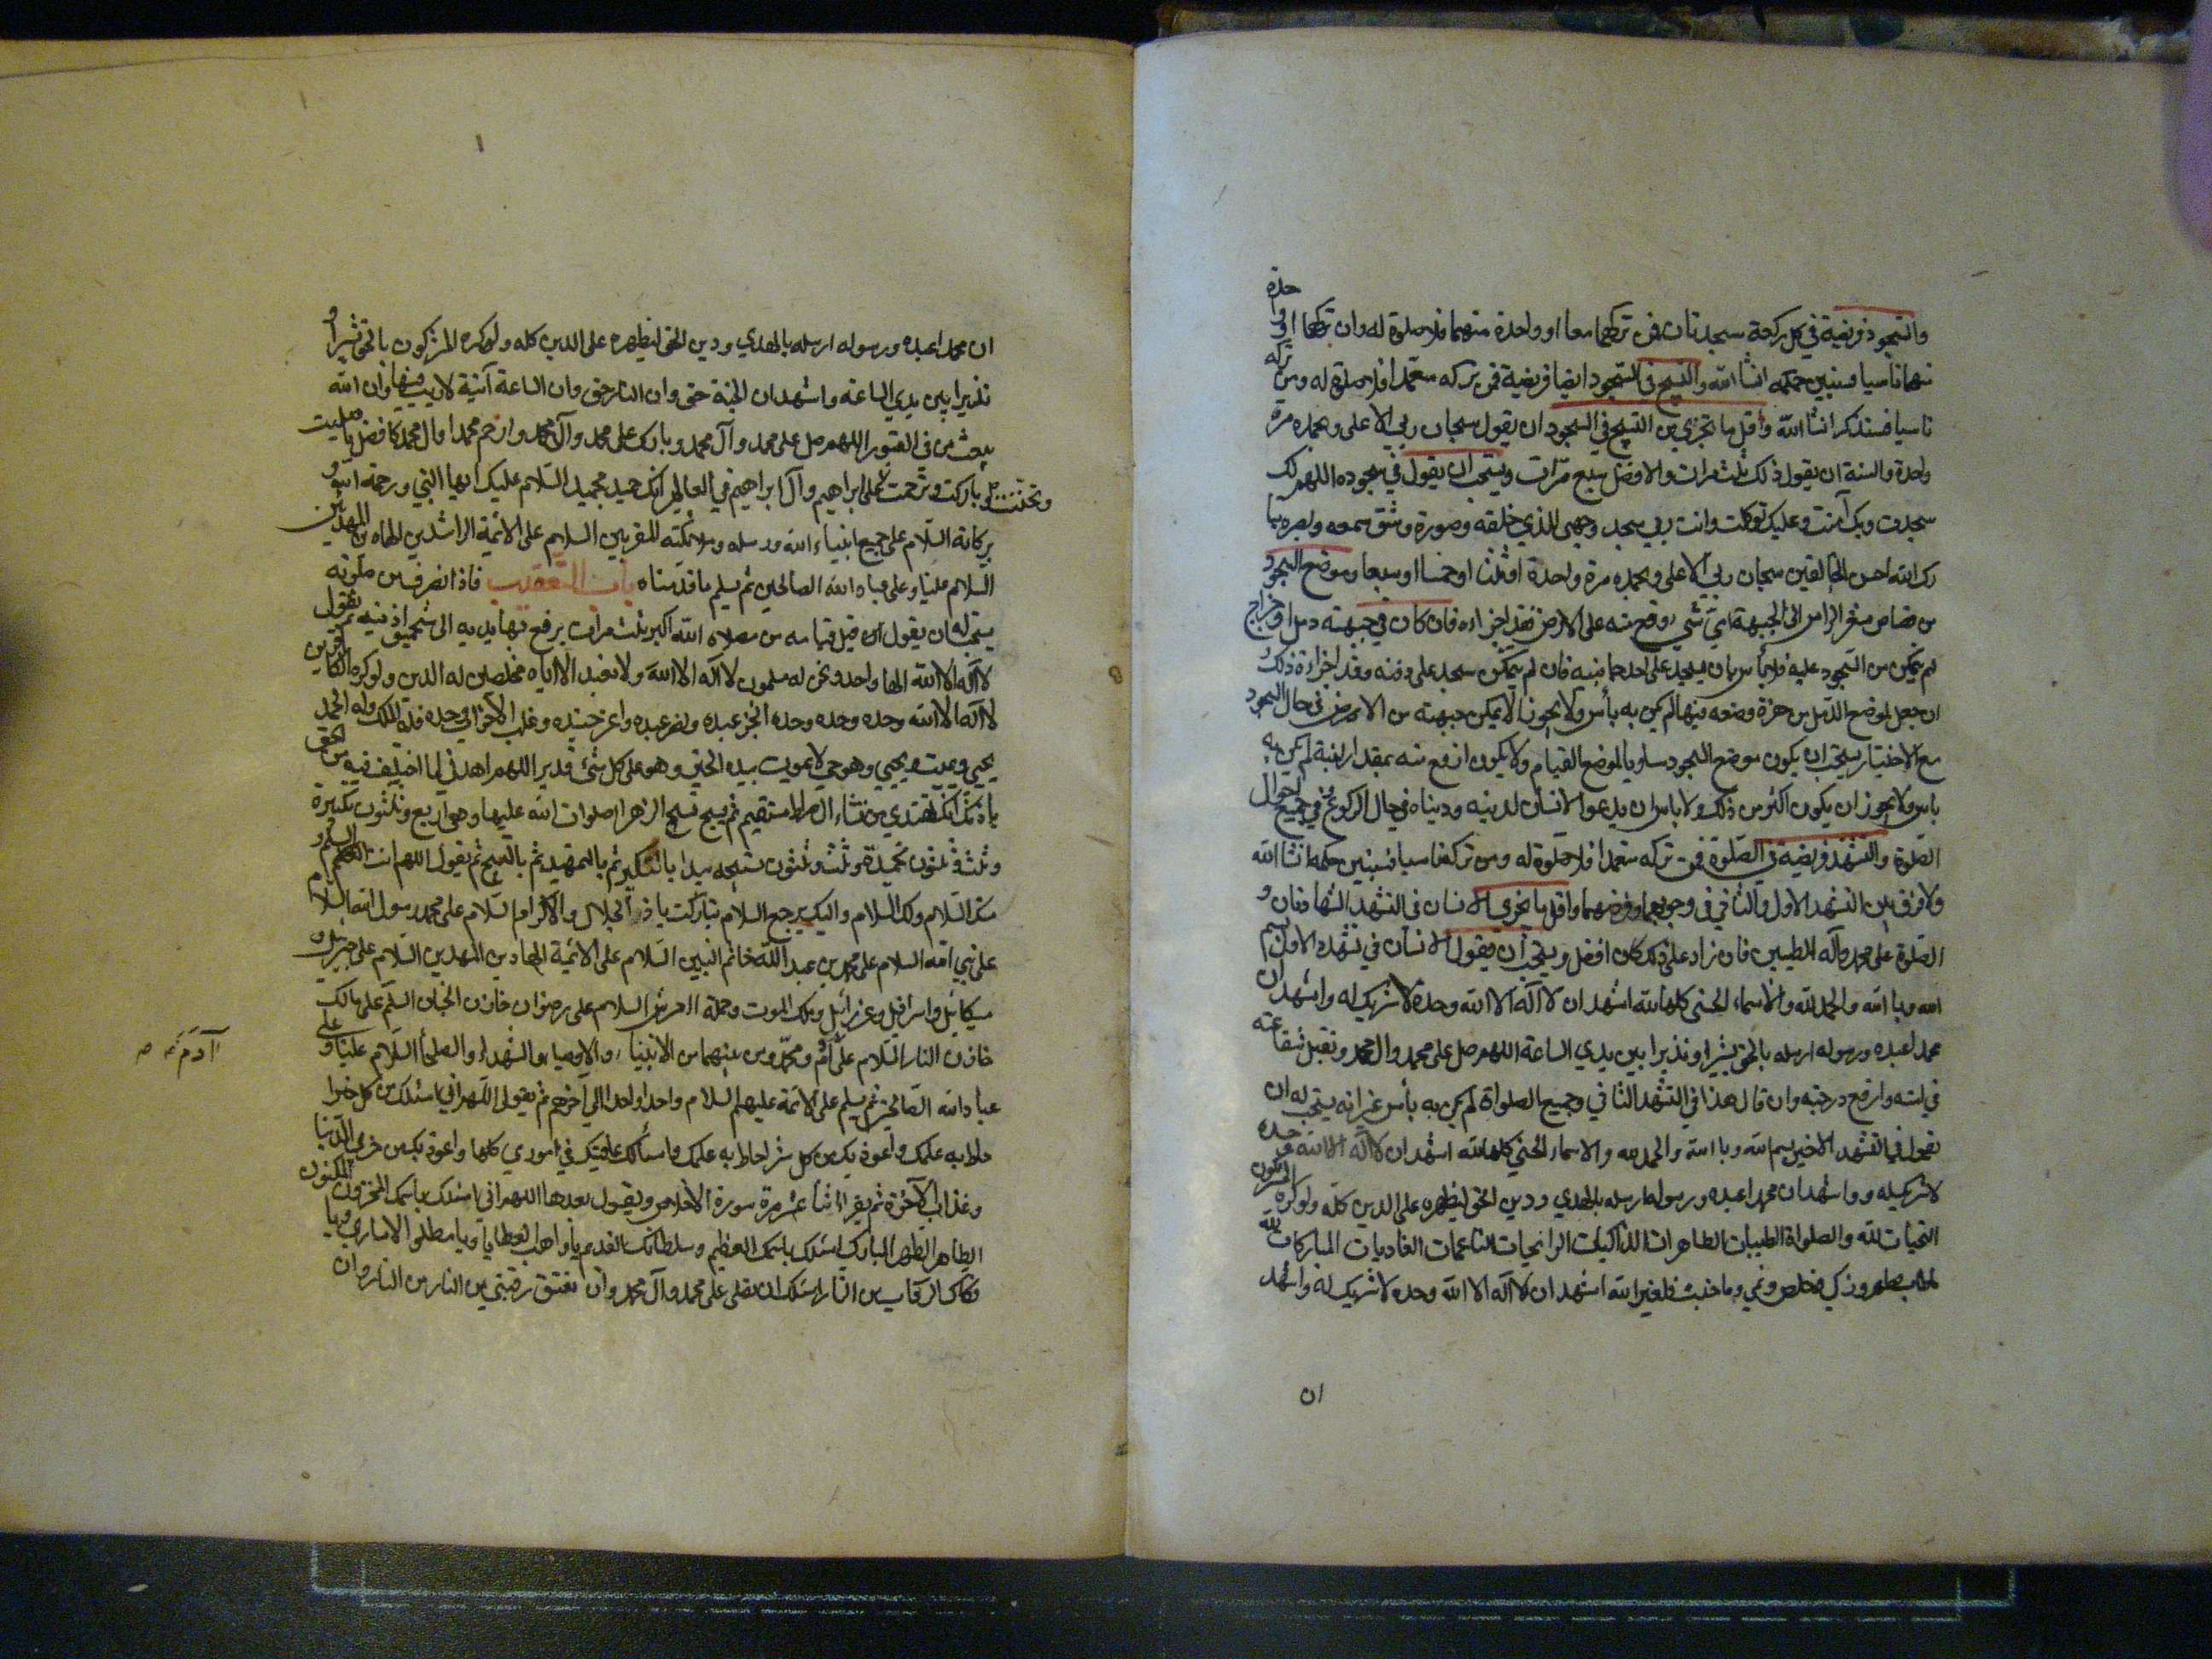 والسجود فريضة في كل ركعة سجدتان فمن تركهما معا او واحدة منهما فلا صلوة له وان تركهما او واحدة
منهما ناسيا فسنبين حكمه انشا الله والتسبيح في السجود ايضا فريضة فمن تركه متعمدا فلا صلوة له ومن تركه
ناسيا فسنذكر انشا الله واقل ما يجزي من التسبيح في السجود ان يقول سبحان ربي الاعلى وبحمده مرة
واحدة والسنة ان يقول ذلك ثلث مرات والافضل سبع مرات ويستحب ان يقول في سجوده اللهم لك
سجدت وبك آمنت وعليك توكلت وانت ربي سجد وجهي للذي خلقه وصوره وشق سمعه وبصره تبا
رك الله احسن الخالقين سبحان ربي الاعلى وبحمده مرة واحدة او ثلثا او خمسا او سبعا وموضع السجود
من قصاص شعر الراس الى الجبهة اي شي وقع منه على الارض فقد اجزاه فان كان في جبهته دمل او خراج
لم يتمكن من السجود عليه فلا بأس بان يسجد على احد جانبيه فان لم يتمكن سجد على ذقنه وقد اجزاه ذلك و
ان جعل لموضع الدمل من حفرة ووضعه فيها لم يكن به بأس ولا يجوز ان لا يمكن جبهته من الارض في حال السجود
مع الاختيار يستحب ان يكون موضع السجود مساويا لموضع القيام ولا يكون ارفع منه بمقدار لبنة لم يكن به
باس ولا يجوز ان يكون اكثر من ذلك ولا باس ان يدعوا الانسان لدينه ودنياه في حال الركوع وفي جميع احوال
الصلوة والتشهد فريضة في الصلوة فمن تركه متعمدا فلا صلوة له ومن تركه ناسيا فسنبين حكمه انشا الله
ولا فرق بين التشهد الاول والثاني في وجوبهما وفرضهما واقل ما يجزي الانسان في التشهد الشهادتان و
الصلوة على محمد وآله الطيبين فان زاد على ذلك كان افضل ويستحب ان يقول الانسان في تشهده الاول بسم
الله وبا الله والحمد لله والاسماء الحسنى كلها لله اشهد ان لا آله الا الله وحده لا شريك له واشهد ان
محمدا عبده ورسوله ارسله بالحق بشيرا ونذيرا بين يدي الساعة اللهم صل على محمد وال محمد وتقبل شفاعته
في امته وارفع درجته وان قال هذا في التشهد الثاني وجميع الصلوات لم يكن به بأس غير انه يستحب له ان
يقول في التشهد الاخير بسم الله وبا الله والحمد لله والاسماء الحسنى كلها لله اشهد ان لا آله الا الله وحده
لا شريك له وواشهد ان محمدا عبده ورسوله ارسله بالهدي ودين الحق ليظهره على الدين كله ولو كره المشركون
التحيات لله والصلوات الطيبات الطاهرات الزاكيات الرائحات الناعمات الغاديات المباركات لله
ما طاب وطهر وزكي وخلص ونمي وما خبث فلغير الله اشهد ان لا آله الا الله وحده لا شريك له واشهد
ان
ان محمدا عبده ورسوله ارسله بالهدي ودين الحق ليظهره على الدين كله ولو كره المشركون بالحق بشيرا و
نذيرا بين يدي الساعة واشهد ان الجنة حق وان النار حق وان الساعة آتية لا ريب فيها وان الله
يبعث من في القبور اللهم صل على محمد وآل محمد وبارك على محمد وآل محمد وارحم محمدا وال محمد كافضل ما صليت
وباركت وترحمت وتحننت على ابراهيم وآل ابراهيم في العالمين انك حميد مجيد السلام عليك ايها النبي ورحمة الله و
بركاته السلام على جميع انبياء الله ورسله وملائكته المقربين السلام على الائمة الراشدين الهادين المهديين
السلام علينا وعلى عباد الله الصالحين ثم يسلم ما قدمناه باب التعقيب فاذا انصرف من صلوته
يستحب له ان يقول ان قبل قيامه من مصلاه الله اكبر ثلث مرات يرفع بها يديه الى شحمتي اذنيه ثم يقول
لا آله الا الله الها واحدا ونحن له مسلمون لا آله الا الله ولا نعبد الا اياه مخلصين له الدين ولو كره الكافرون
لا آله الا الله وحده وحده وحده انجز عبده ونصر عبده واعز جنده وغلب الاحزاب وحده فله الملك وله الحمد
يحيي ويميت ويحيي وهو حي لا يموت بيده الخير وهو على كل شئ قدير اللهم اهدني لما اختلف فيه من الحق
باذنك انك تهتدي من تشاء الى صراط مستقيم ثم يسبح تسبيح الزهرا صلوات الله عليها وهي اربع وثلثون تكبيرة
وثلث وثلثون تحميدة وثلث وثلثون تسبيحه يبدا بالتكبير ثم بالتحميد ثم بالتسبيح ثم يقول اللهم انت السلام و
منك السلام ولك السلام واليك يرجع السلام تباركت يا ذا الجلال والاكرام السلام على محمد رسول الله السلام
على نبي الله السلام على محمد بن عبد الله خاتم النبيين السلام على الائمة الهادين المهديين السلام على جبرئيل و
ميكائيل واسرافيل وعزرائيل وملك الموت وحملة العرش السلام على رضوان خازن الجنان السلم على مالك
خازن النار السلام على آدم ومحمد ومن بينهما من الانبياء والاوصياء والشهداء والصلحا السلام علينا وعلى
آدم صح
عباد الله الصالحين ثم يسلم على الائمة عليهم السلام واحدا واحدا الى آخرهم ثم يقول اللهم اني اسئلك من كل خير ا
حاط به علمك واعوذ بك من كل شر احاط به علمك واسألك عافيتك في اموري كلها واعوذ بك من خزي الدنيا
وعذاب الآخرة ثم يقرا اثنا عشر مرة سورة الاخلاص ويقول بعدها اللهم اني اسئلك باسمك المخزون المكنون
الطاهر الطهر المبارك اسئلك باسمك العظيم وسلطانك القديم يا واهب العطايا ويا مطلق الاسارى ويا
فكاك الرقاب من النار اسئلك ان تصلى على محمد وآل محمد وان تعتق رقبتي من النار من النار وان